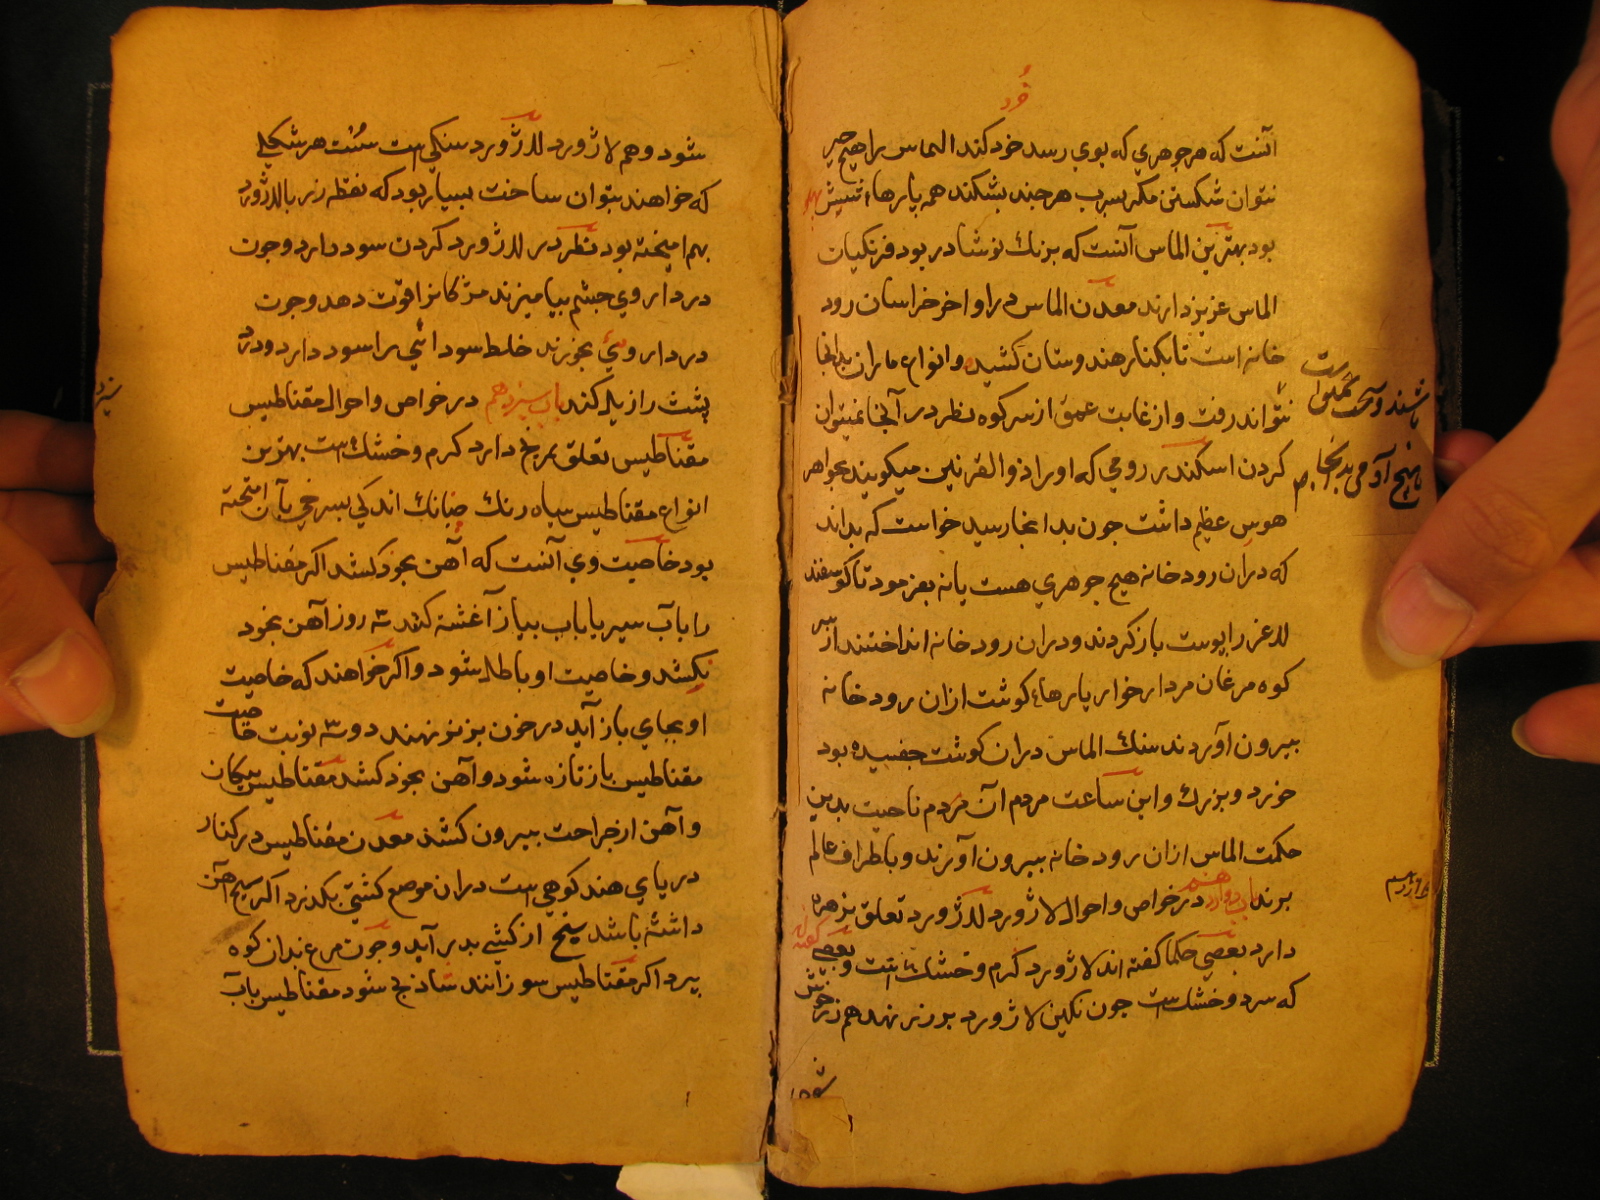 خُرد
آنست که هر جوهري که بوي رسد خود کند الماس را هیچ چیز
نتوان شکستن مکر بسرب هرچند بشکند همه پارهاء شش پهلو
بود بهترین الماس آنست که برنك نوشادر بود فرنکیان
الماس عزیز دارند معدن الماس در اواخر خراسان رود
خانه است تا بکنار هندوستان کشیده و انواع ماران بدانجا
باشند و آن عمیق است
نتواند رفت و از غایت عمق از سر کوه نظر در آنجا نمیتوان
هیچ آدمی بدانجا
کردن اسکندر رومي که او را ذوالقرنین میکویند بجواهر
هوس عظیم داشت جون بدانجا رسید خواست که بداند
که دران رود خانه هیچ جوهري هست یا نه بفرمود تا کوسفند
لاغر را پوست باز کردند و دران رود خانه انداختند از سر
کوه مرغان مردار خوار پارهاء کوشت ازان رود خانه
بیرون آوردند سنك الماس دران کوشت جفسیده بود
خورد و بزرك و این ساعت مردم آن مردم ناحیت بدین
حکمت الماس ازان رود خانه بیرون آورند و باطراف عالم
برند باب دوازدهم در خواص و احوال لاژورد لاژورد تعلق بزهره
دارد بعضي حکما کفته اند لاژورد کرم و خشك است و بعضی کفته اند
که سرد و خشك است جون نکین لاژورد بر زر نهند هم زر خوش
شود
شود و هم لاژورد لاژورد سنکي است سُست هر شکلي
که خواهند بتوان ساخت بسیار بود که نقطه زر با لاژورد
بهم امیخته بود نظر در لاژورد کردن سود دارد و جون
در داروي جشم بیامیزند مژکانرا قوّت دهد و جون
در داروئي بخورند خلط سودائي را سود دارد و درد
پشت را زایل کند باب سیزدهم در خواص و احوال مقناطیس
مقناطیس تعلق بمریخ دارد کرم و خشك است بهترین
انواع مقناطیس سیاه رنك جنانك اندکي بسرخي بآن امیخته
بود خاصیت وي آنست که آهن بخود کشد اکر مقناطیس
را بآب سیر یا باب بیاز آغشته کنند سه روز آهن بخود
نکشد و خاصیت او باطل شود و اکر خواهند که خاصیت
او بجاي باز آید در خون بز نو نهند دو سه نوبت خاصیت
مقناطیس باز تازه شود و آهن بخود کشد مقناطیس پیکان
و آهن از جراحت بیرون کشد معدن مقناطیس در کنار
دریاي هند کوهي است دران موضع کشتي بکذرد اکر میخ آهن
داشته باشد میخ از کشتي بدر آید و جون مرغ بدان کوه
بپرد اکر مقناطیس سوزانند شاذنج شود مقناطیس بآب